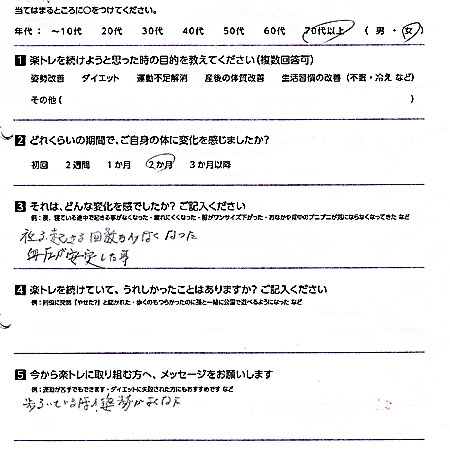 当てはまるところに○をつけてください。
年代： ～10代 20代 30代 40代 50代 60代 70代以上 （ 男 ・ 女 ）
1 楽トレを続けようと思った時の目的を教えてください（複数回答可）
姿勢改善 ダイエット 運動不足解消 産後の体質改善 生活習慣の改善（不眠・冷え など）
その他（ ）
2 どれくらいの期間で、ご自身の体に変化を感じましたか？
初回 2週間 1か月 2か月 3か月以降
3 それは、どんな変化を感でしたか？ ご記入ください
例：夜、寝ている途中で起きる事がなくなった・疲れにくくなった・服がワンサイズ下がった・おなかや背中のプニプニが気にならなくなってきた など
夜る、起きる回数が少なくなった
血圧が安定した事
4 楽トレを続けていて、うれしかったことはありますか？ ご記入ください
例：同僚に突然「やせた？」と聞かれた・歩くのもつらかったのに孫と一緒に公園で遊べるようになった など
5 今から楽トレに取り組む方へ、メッセージをお願いします
例：運動が苦手でもできます・ダイエットに失敗された方にもおすすめです など
歩るいている時 姿勢がよくなった